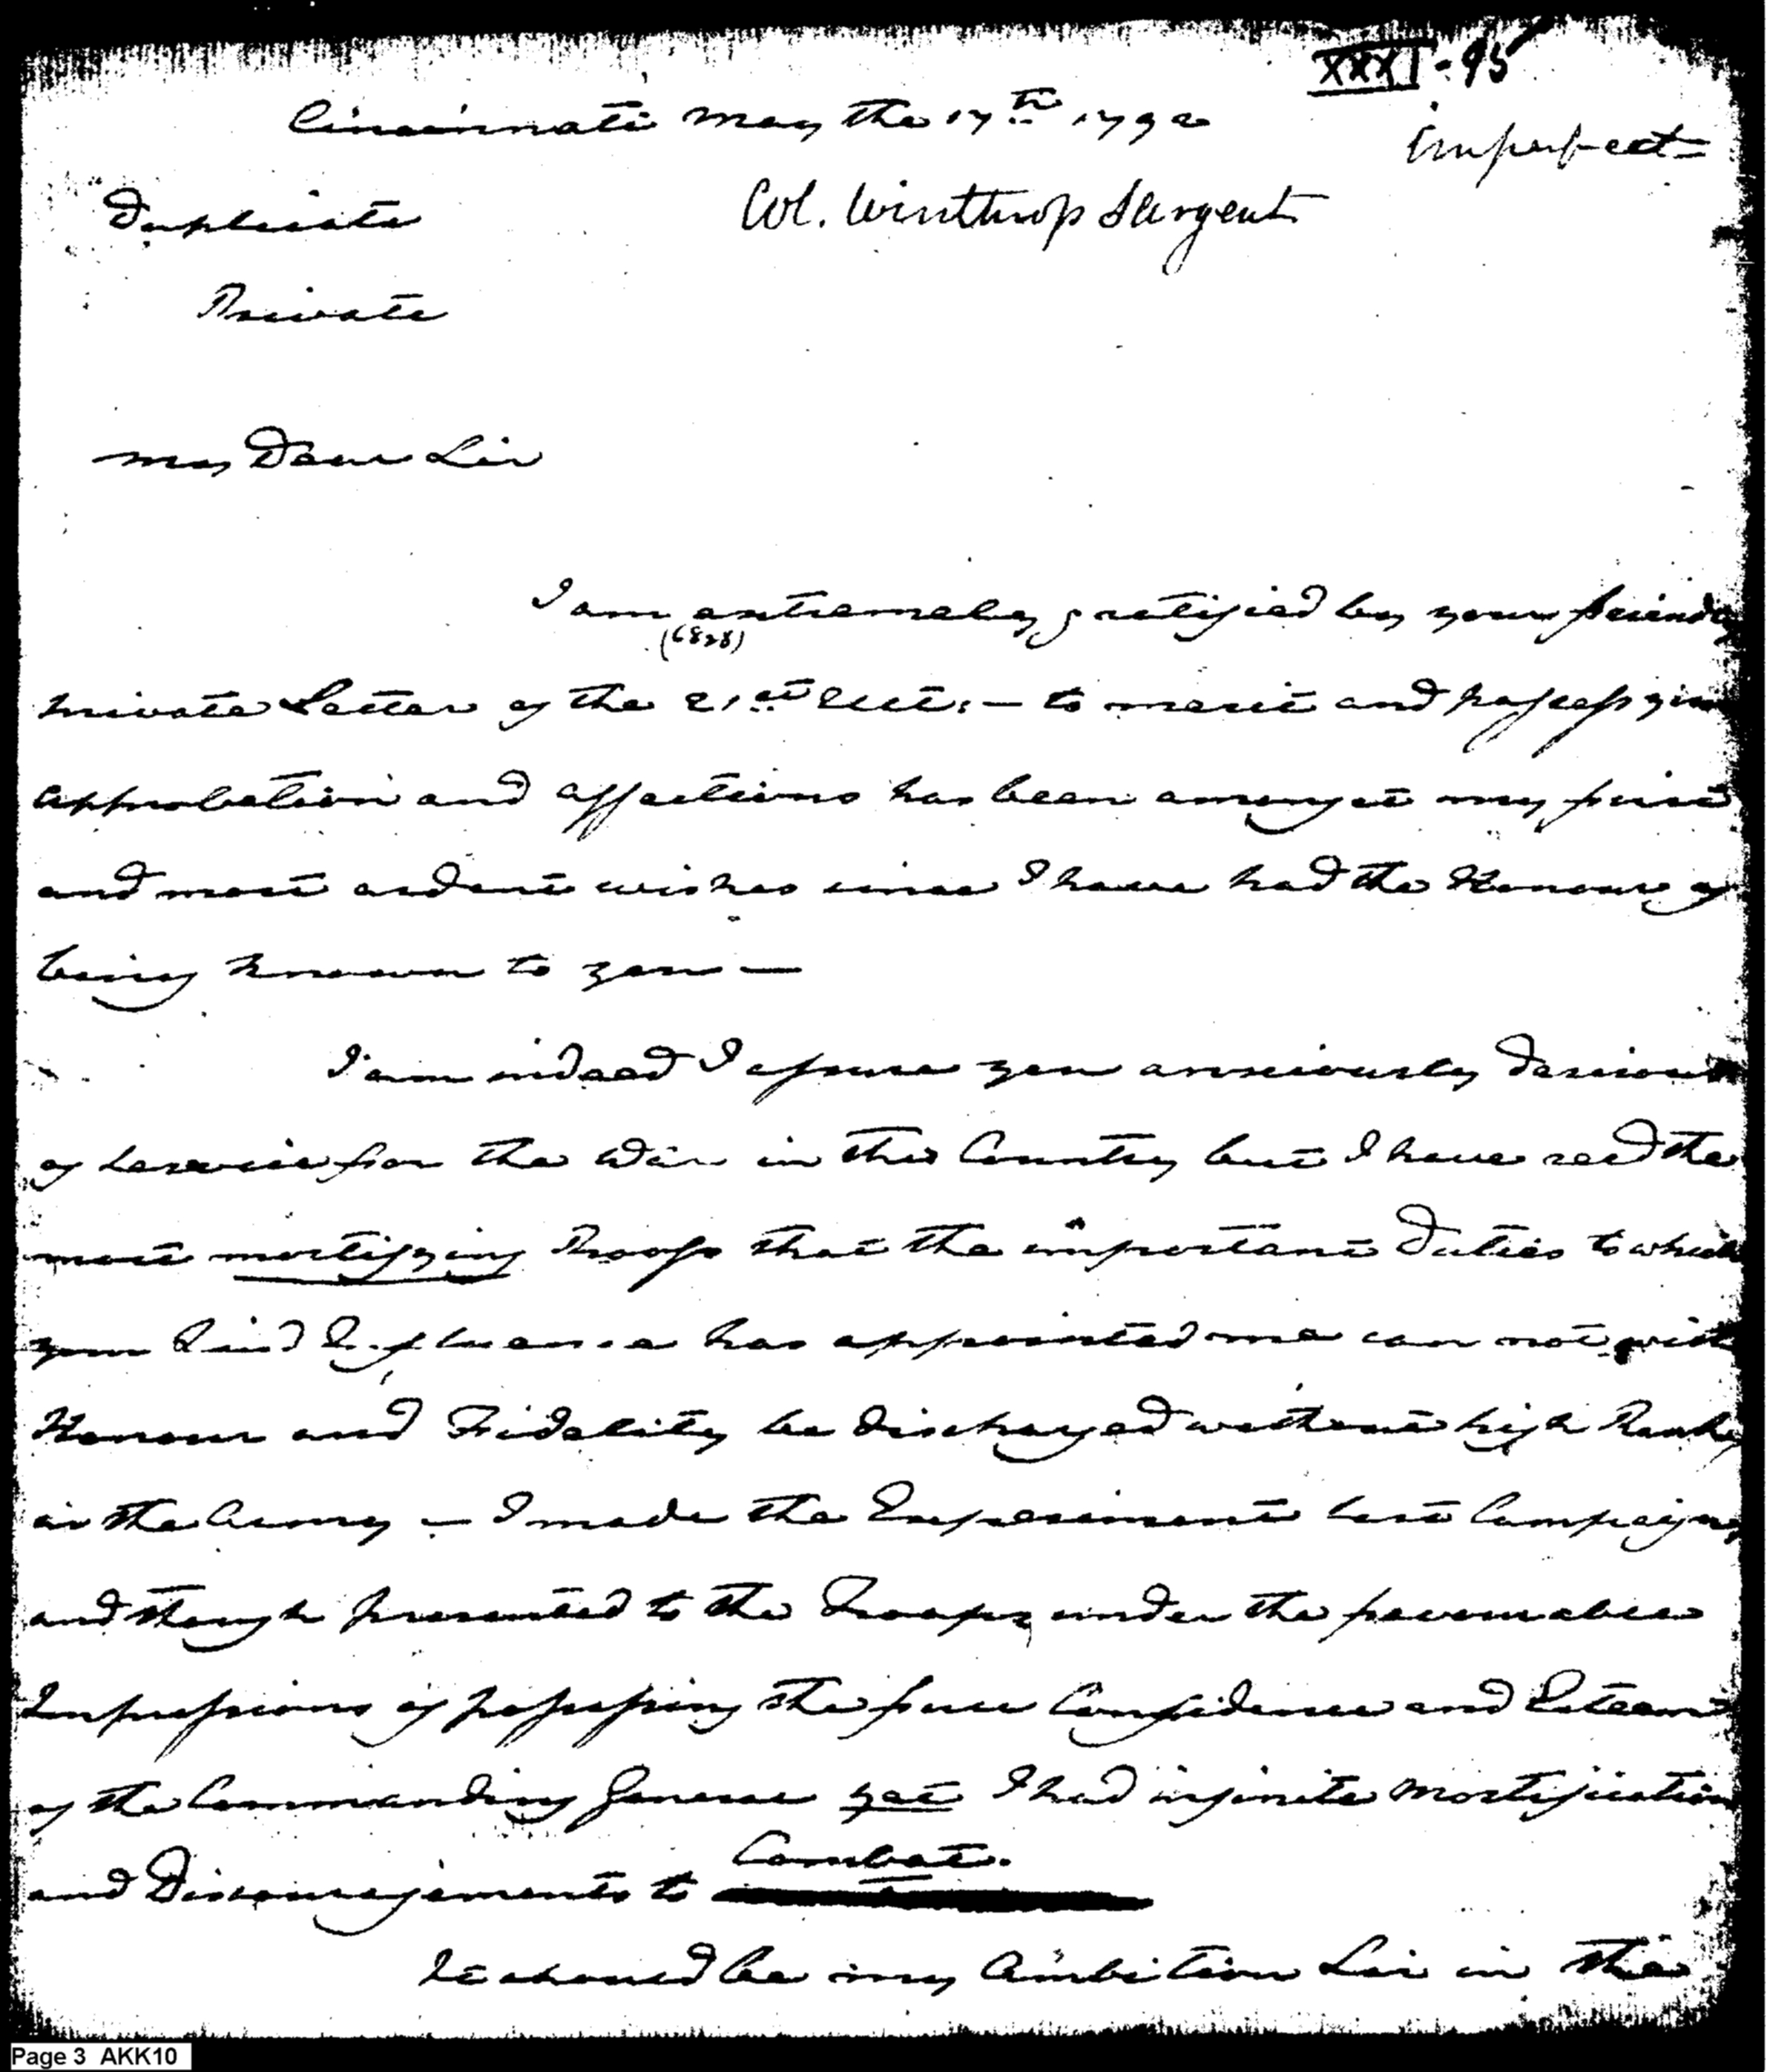 XXXI-95
Cincinnati May the 17th 1792
imperfect
Duplicate
Col. Winthrop Sargent
Private
My Dear Sir
I am extremely gratified by your friendly
(6828)
private Letter of the 21st Ult:— to merit and possess your
approbation and affections has been amongst my first
and most ardent wishes since I have had the Honour of
being known to you —
I am indeed I assure you anxiously desirous
of service for the War in this Country but I have recd the
most mortifying Proofs that the important Duties to which
your kind Influence has appointed me can not with
Honour and Fidelity be discharged without high Rank
in the Army — I made the Experiment last Campaign
and though presented to the Troops under the favourable
Impressions of possessing the full Confidence and Esteem
of the Commanding General yet I had infinite Mortification
and Discouragements to Combat.
It should be my Ambition Sir in the
Page 3 AKK10